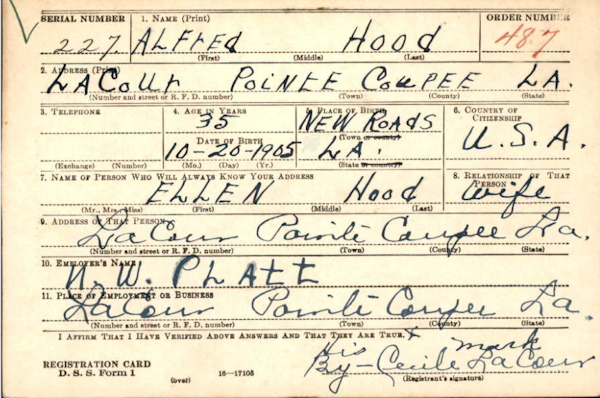 SERIAL NUMBER 1. NAME (Print) ORDER NUMBER
227. ALFRED HOOD 487
(First) (Middle) (Last)
2. ADDRESS (Print)
LACOUR POINTE COUPEE LA.
(Number and street or R. F. D. number) (Town) (County) (State)
3. TELEPHONE 4. AGE IN YEARS 5. PLACE OF BIRTH 6. COUNTRY OF CITIZENSHIP
35 NEW ROADS U.S.A.
DATE OF BIRTH (Town or county)
10-20-1905 LA.
(Exchange) (Number) (Mo.) (Day) (Yr.) (State or country)
7. NAME OF PERSON WHO WILL ALWAYS KNOW YOUR ADDRESS 8. RELATIONSHIP OF THAT PERSON
ELLEN HOOD wife
(Mr., Mrs., Miss) (First) (Middle) (Last)
9. ADDRESS OF THAT PERSON
LaCour Pointe Coupee La.
(Number and street or R. F. D. number) (Town) (County) (State)
10. EMPLOYER'S NAME
N. W. PLATT
11. PLACE OF EMPLOYMENT OR BUSINESS
LaCour Pointe Coupee La.
(Number and street or R. F. D. number) (Town) (County) (State)
I AFFIRM THAT I HAVE VERIFIED ABOVE ANSWERS AND THAT THEY ARE TRUE. X
his mark
REGISTRATION CARD By- Cecile LaCour
D. S. S. Form 1 (over) 16—17105 (Registrant's signature)